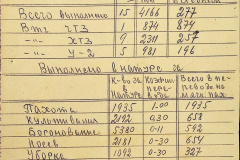 Всего выполнено 15 4166 277
В т.ч. ЧТЗ 1 874 874
-"- ХТЗ 9 2311 257
-"- У-2 5 981 196
Выполнено в натуре га
К-во га в натуре Коэфиц. пере- Всего в пе- реводе на
Пахота 1935 1.00 1935
Культивация 2192 0.30 658
Боронование 5380 0-11 592
Посев 2181 0-30 654
Уборка 1092 0-30 327